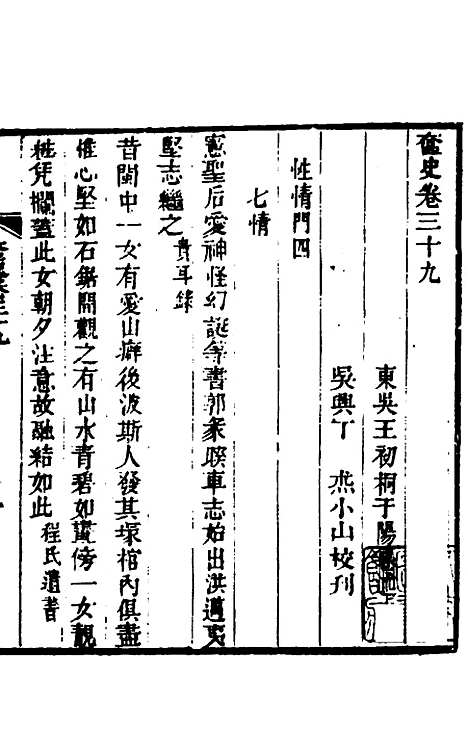 奩史卷三十九
東吳王初桐于陽
吳興丁 㷼小山校刊
性情門四
七情
憲聖后愛神怪幻誕等書郭彖睽車志始出洪邁夷
堅志繼之貴耳錄
昔閩中一女有愛山癖後波斯人發其塚棺內俱盡
惟心堅如石鋸開觀之有山水青碧如畫傍一女靚
粧凭欄蓋此女朝夕注意故融結如此程氏遺書